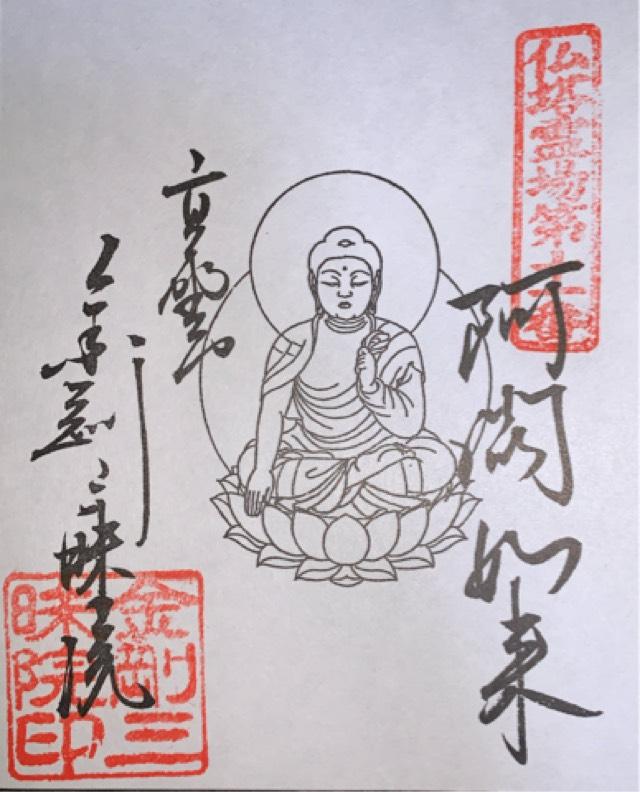 仏塔霊場第十番
阿閦如来
高野山
金剛三昧院
金剛三
昧院印